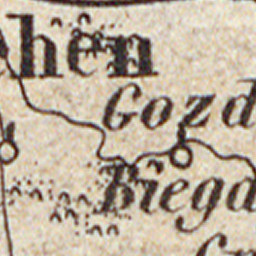 hen
Gozd
Biegd